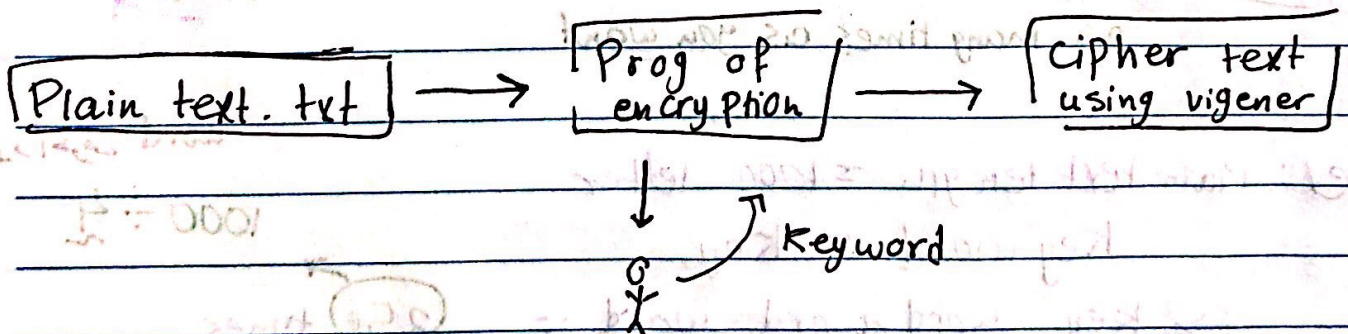 Plain text.txt
Prog of
encryption
Cipher text
using vigener
Keyword